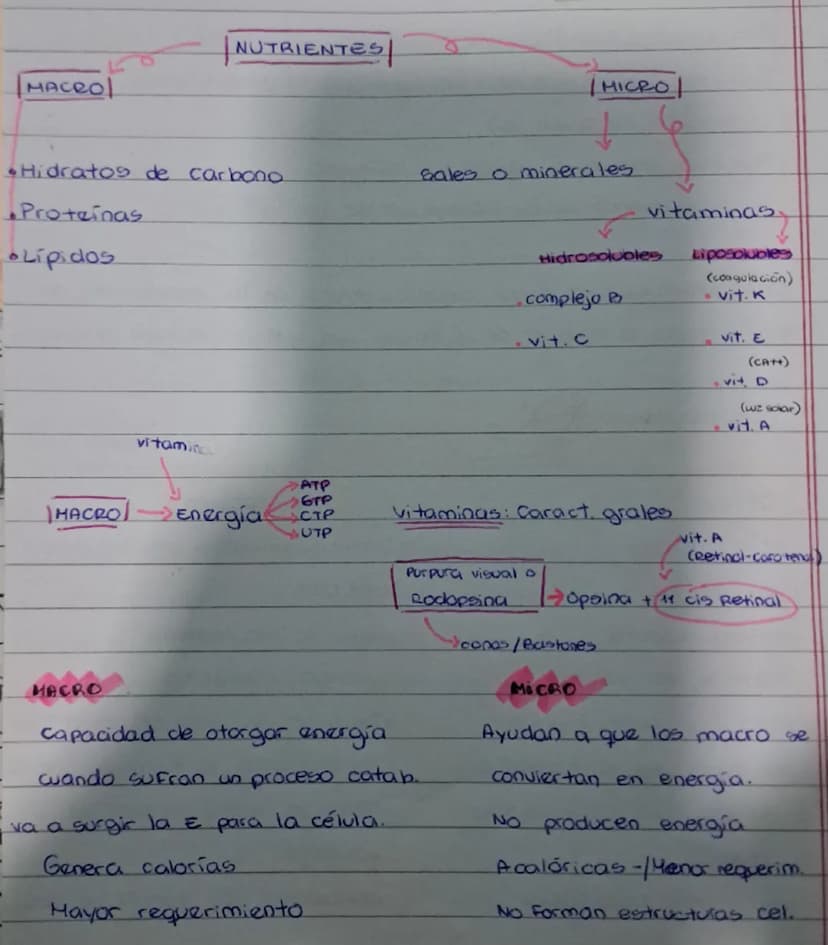 NUTRIENTES
MACRO
MICRO
Hidratos de carbono
Sales o minerales
Proteínas
vitaminas
Lípidos
Hidrosolubles
Liposolubles
(coagulación)
complejo B
vit. K
vit. C
vit. E
(CA++)
vit. D
(luz solar)
vit. A
vitamina
MACRO
Energía
ATP
GTP
CTP
UTP
Vitaminas: Caract. grales
vit. A
(Retinol-caroteno)
Púrpura visual o
Rodopsina
Opsina + 11 cis Retinal
conos/Bastones
MACRO
MICRO
Capacidad de otorgar energía
cuando sufran un proceso catab.
va a surgir la E para la célula.
Genera calorías
Mayor requerimiento
Ayudan a que los macro se
conviertan en energía.
No producen energía
Acalóricas -/Menor requerim.
No Forman estructuras cel.